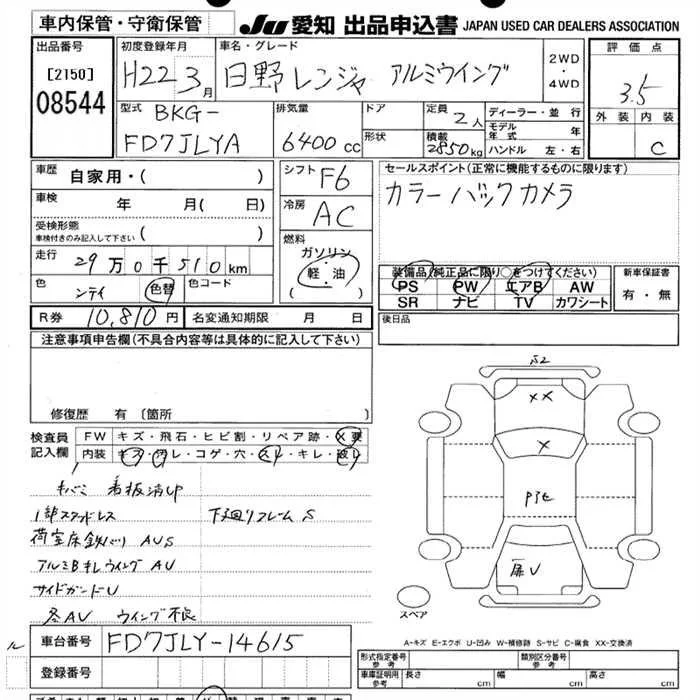 車内保管・守衛保管
JU 愛知 出品申込書 JAPAN USED CAR DEALERS ASSOCIATION
出品番号
[2150]
08544
初度登録年月
H22 3月
車名・グレード
日野レンジャ アルミウイング
2WD
・
4WD
評価点
3.5
外装 内装
C
型式
BKG-
FD7JLYA
排気量
6400 cc
ドア
形状
定員
2人
積載
2850kg
ディーラー・並行
モデル年式 年
ハンドル 左・右
車歴
自家用・( )
車検
年 月( 日)
受検形態
車検付きのみ記入して下さい ( )
走行
29万0千510km
色
ンテイ
色替
色コード
シフト F6
冷房 AC
燃料
ガソリン
軽・油
( )
セールスポイント(正常に機能するものに限ります)
カラーバックカメラ
装備品(純正品に限り○をつけてください)
PS PW エアB AW
SR ナビ TV カワシート
新車保証書
有・無
R券 10,810円
名変通知期限 月 日
後日品
注意事項申告欄(不具合内容等は具体的に記入して下さい)
修復歴 有 〔箇所 〕
検査員
記入欄
FW キズ・飛石・ヒビ割・リペア跡・X要
内装 キズ・汚レ・コゲ・穴・スレ・キレ・破レ
看板消し
1部スタッドレス 下廻リフレームS
荷室床鉄バリ AUS
アルミBキレ ウイング AU
サイドガードU
各AU ウイング不良
XX
X
戸U
スペア
A-キズ E-エクボ U-凹み W-補修跡 S-サビ C-腐食 XX-交換済
ル
車台番号 FD7JLY-14615
登録番号
形式指定番号
参考
類別区分番号
参考
車庫証明用
参考
長さ cm 幅 cm 高さ cm